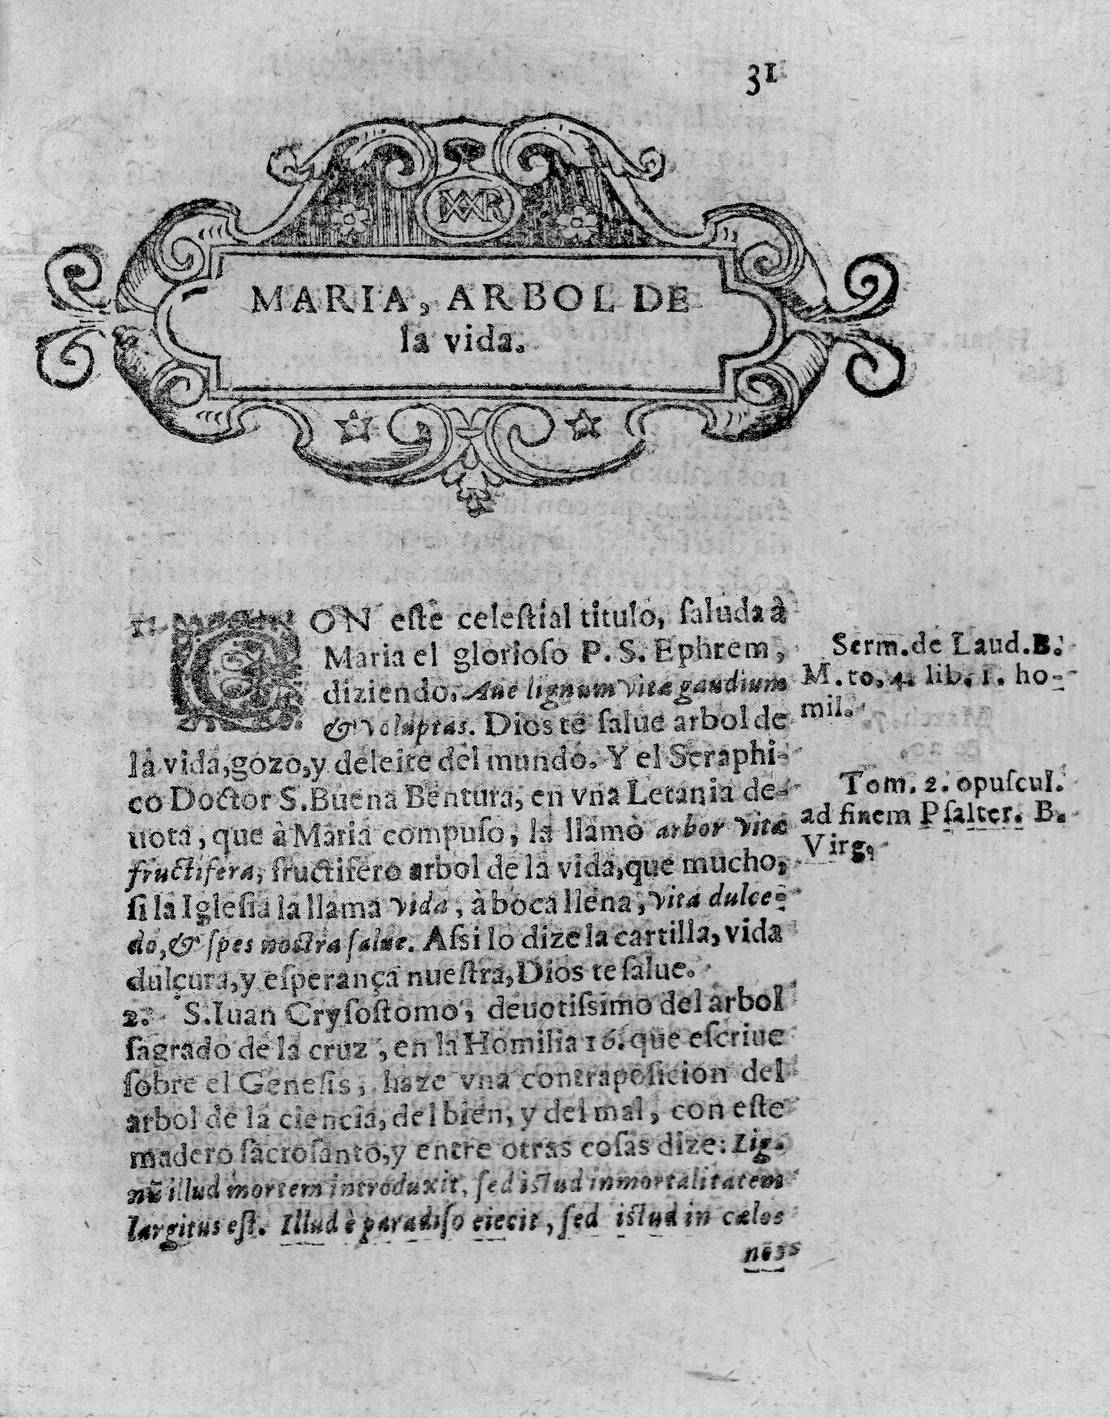 31
MARIA, ARBOL DE
la vida.
1. CON eſte celeſtial titulo, ſaluda à
Maria el glorioſo P. S. Ephrem,
diziendo. Aue lignum vitæ gaudium
& voluptas. Dios te ſalue arbol de
la vida, gozo, y deleite del mundo. Y el Seraphi-
co Doctor S. Buena Bentura, en vna Letania de-
uota, que à Maria compuſo, la llamò arbor vitæ
fructifera, fructifero arbol de la vida, que mucho,
ſi la Igleſia la llama vida, à boca llena, vita dulce-
do, & ſpes noſtra ſalue. Aſsi lo dize la cartilla, vida
dulçura, y eſperança nueſtra, Dios te ſalue.
2. S. Iuan Cryſoſtomo, deuotiſsimo del arbol
ſagrado de la cruz, en la Homilia 16. que eſcriue
ſobre el Geneſis, haze vna contrapoſicion del
arbol de la ciencia, del bien, y del mal, con eſte
madero ſacroſanto, y entre otras coſas dize: Lig-
nũ illud mortem introduxit, ſed iſtud inmortalitatem
largitus eſt. Illud è paradiſo eiecit, ſed iſtud in cælos
nos
Serm. de Laud. B.
M. to. 4. lib. 1. ho-
mil.
Tom. 2. opuſcul.
ad finem Pſalter. B.
Virg.